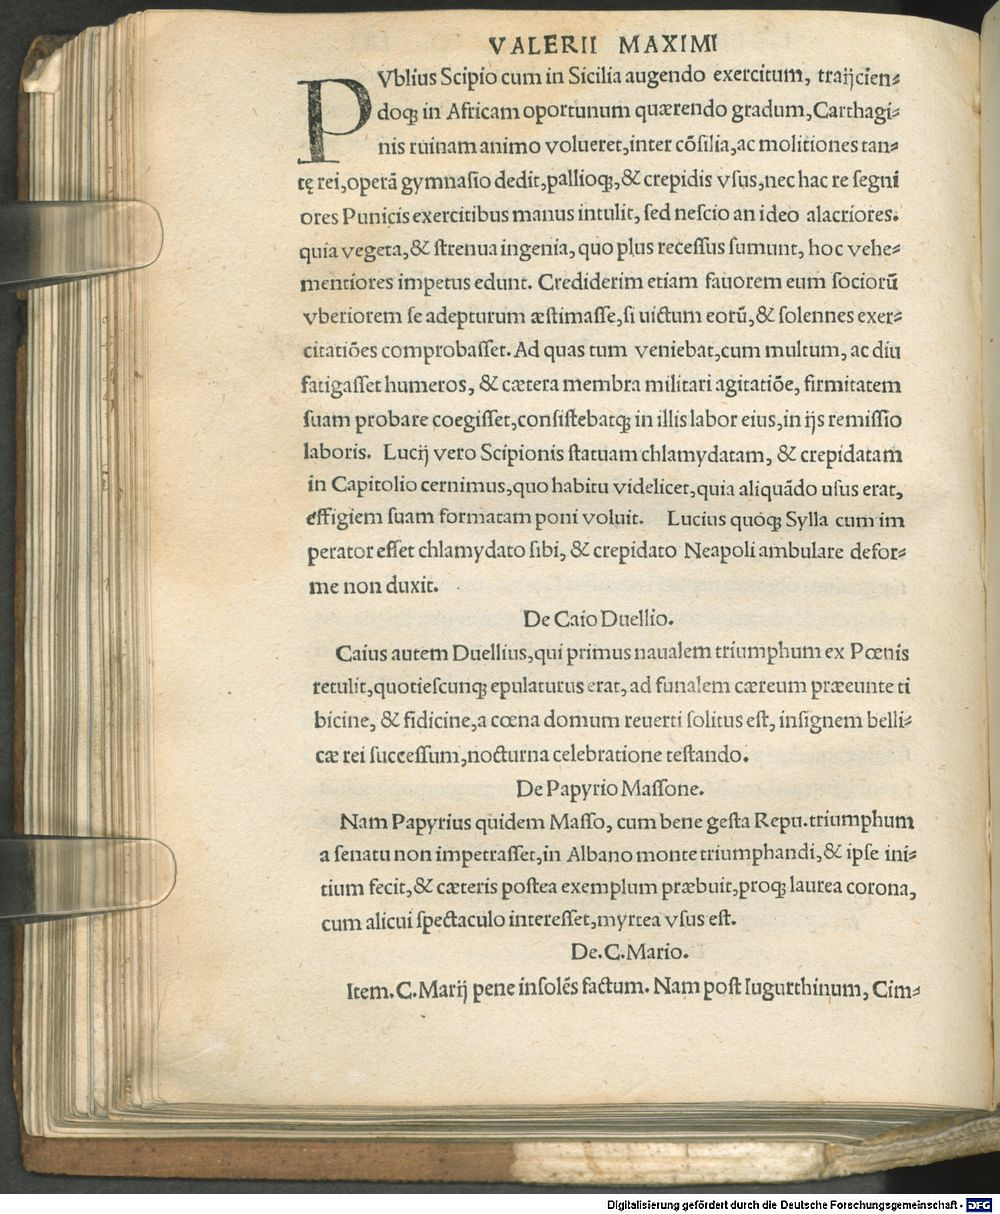 VALERII MAXIMI
PVblius Scipio cum in Sicilia augendo exercitum, traijcien⸗
doq; in Africam oportunum quærendo gradum,Carthagi⸗
nis ruinam animo volueret,inter cõsilia,ac molitiones tan⸗
tę rei,operã gymnasio dedit,pallioq;,& crepidis vsus,nec hac re segni
ores Punicis exercitibus manus intulit, sed nescio an ideo alacriores.
quia vegeta,& strenua ingenia, quo plus recessus sumunt, hoc vehe⸗
mentiores impetus edunt. Crediderim etiam fauorem eum sociorũ
vberiorem se adepturum æstimasse,si uictum eorũ,& solennes exer⸗
citatiões comprobasset. Ad quas tum veniebat,cum multum, ac diu
fatigasset humeros, & cætera membra militari agitatiõe, firmitatem
suam probare coegisset,consistebatq; in illis labor eius,in ijs remissio
laboris. Lucij vero Scipionis statuam chlamydatam, & crepidatam
in Capitolio cernimus,quo habitu videlicet,quia aliquãdo usus erat,
effigiem suam formatam poni voluit. Lucius quoq; Sylla cum im
perator esset chlamydato sibi, & crepidato Neapoli ambulare defor⸗
me non duxit.
De Caio Duellio.
Caius autem Duellius,qui primus naualem triumphum ex Pœnis
retulit,quotiescunq; epulaturus erat, ad funalem cæreum præeunte ti
bicine, & fidicine,a cœna domum reuerti solitus est, insignem belli⸗
cæ rei successum,nocturna celebratione testando.
De Papyrio Massone.
Nam Papyrius quidem Masso, cum bene gesta Repu.triumphum
a senatu non impetrasset,in Albano monte triumphandi,& ipse ini⸗
tium fecit,& cæteris postea exemplum præbuit,proq; laurea corona,
cum alicui spectaculo interesset,myrtea vsus est.
De.C.Mario.
Item.C.Marij pene insolẽs factum. Nam post Iugurthinum, Cim⸗
Digitalisierung gefördert durch die Deutsche Forschungsgemeinschaft - DFG